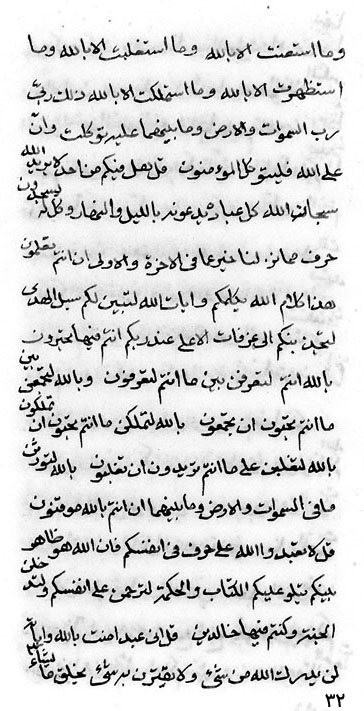 وما استعنت الا بالله وما استغلبت الا بالله وما
استظهرت الا بالله وما استملكت الا بالله ذلك ربى
رب السموات والارض وما بينهما عليه توكلت وان
على الله فليتوكل المؤمنون قل هل منكم من احد لا يريد الله
سبحان الله كل عباد له يدعونه بالليل والنهار وكل له يسجدون
لنا خير عما فى الاخرة والاولى ان انتم تعلمون
هذا كلام الله يكلمكم وايات الله لتبين لكم سبل الهدى
بكم الى عرفات الاعلى عند ربكم انتم فيها تحبرون
بالله انتم لتعرفن بين ما انتم لتعرفون وبالله لتجمعن بين
ما انتم تحبون ان تجمعون بالله لتملكن ما انتم تحبون ان تملكون
بالله لتغلبن على ما انتم تريدون ان تغلبون بالله لتورثن
ما فى السموات والارض وما بينهما ان انتم بالله موقنون
قل لا تعبدوا الله على حرف فى انفسكم فان الله هو ظاهر
بينكم يتلو عليكم الكتاب والحكمة لترحمن على انفسكم
الجنة وكنتم فيها خالدين قل انى عبد امنت بالله واياته
لن يعزب الله من شئ ولا يقترن به شئ يخلق ما يشاء
٣٢